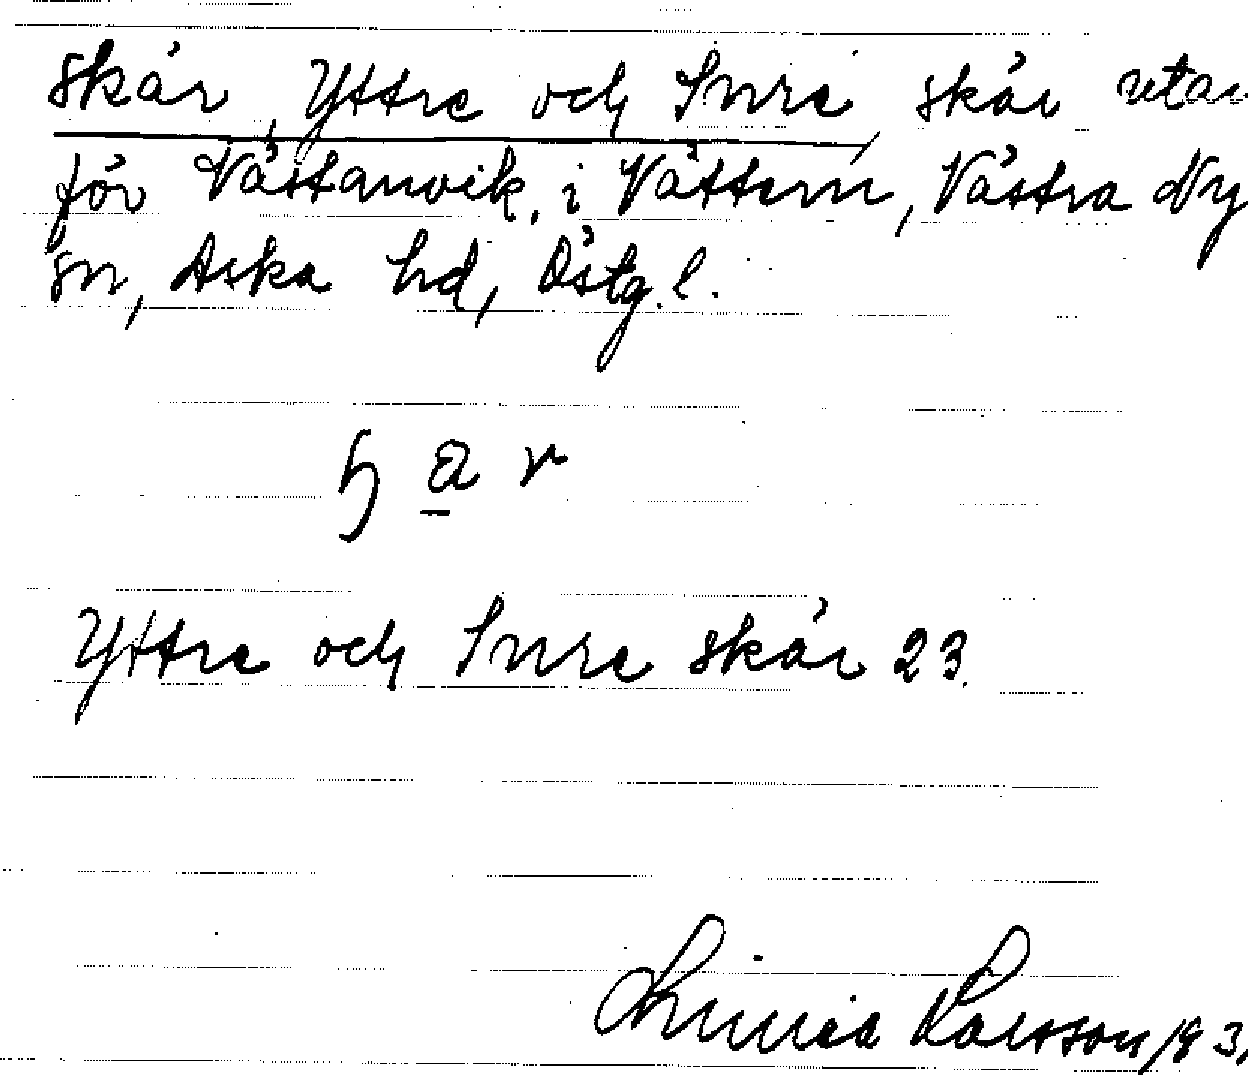 Skär, Yttre och Inre, skär utan
för Västanvik, i Vättern, Västra Ny
sn, Aska hd, Östg. l.
ɧ a r
Yttre och Inre skär 23.
Linnéa Larsson 193